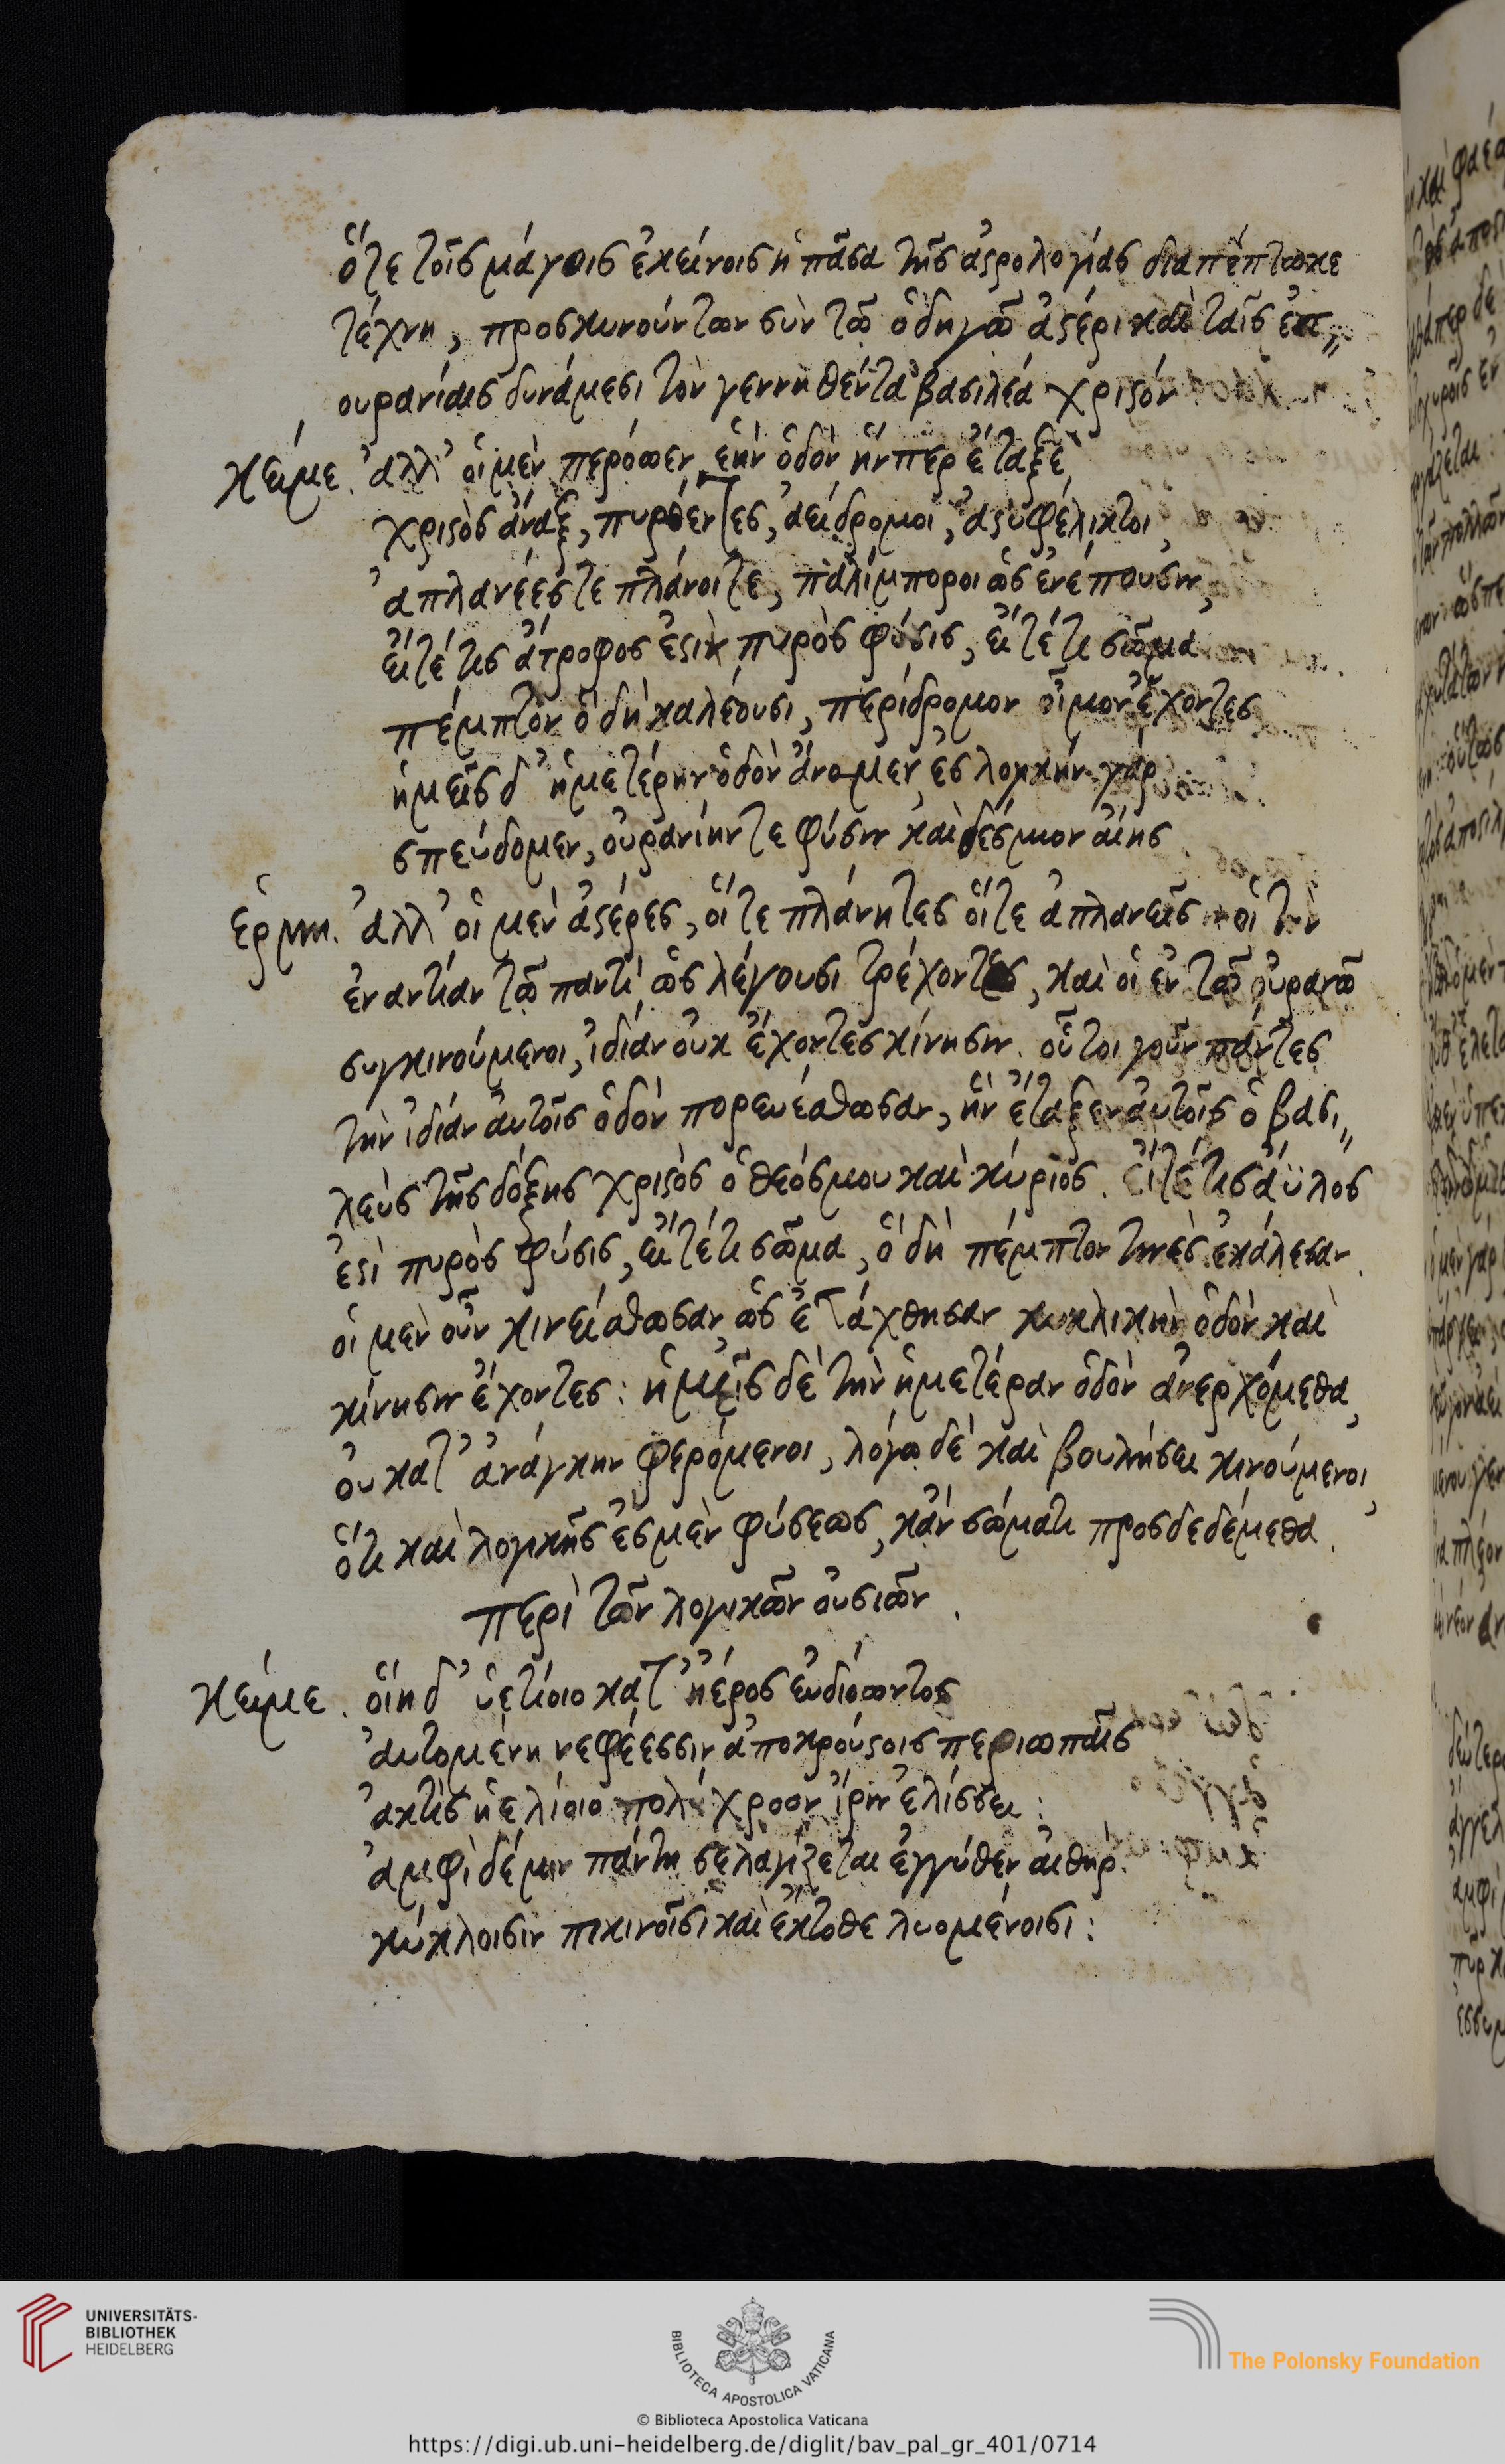 ὅτε τοῖς μάγοις ἐκείνοις ἡ πᾶσα τῆς ἀστρολογίας διαπέπτωκε
τέχνη, προσκυνούντων σὺν τῶ ὁδηγῶ ἀστέρι καὶ ταῖς ἐπ〃
ουρανίαις δυνάμεσι τὸν γεννηθέντα βασιλέα χριστόν
κείμε. ἀλλ' οἱ μὲν περόωεν ἑὴν ὁδὸν ἥνπερ ἔταξε
χριστὸς ἄναξ, πυρόεντες, ἀείδρομοι, ἀστυφέλικτοι,
ἀπλανέες τε πλάνοι τε, παλίμποροι ὡς ἐνέπουσιν,
εἴτέ τις ἄτροφος ἐστὶν πυρὸς φύσις, εἴτέ τι σῶμα
πέμπτον ὃ δὴ καλέουσι, περίδρομον οἶμον ἔχοντες
ἡμεῖς δ' ἡμετέρην ὁδὸν ἄνομεν ἐς λογικήν γὰρ
σπεύδομεν, οὐρανίην τε φύσιν καὶ δέσμιον αἴης
ἑρμη. ἀλλ' οἱ μὲν ἀστέρες, οἵ τε πλάνητες οἵ τε ἀπλανεῖς οἱ τὴν
ἐναντίαν τῶ παντί ὡς λέγουσι τρέχοντες, καὶ οἱ ἐν τῶ οὐρανῶ
συγκινούμενοι, ἰδίαν οὐκ ἔχοντες κίνησιν. οὗτοι γοῦν πάντες
τὴν ἰδίαν αὐτοῖς ὁδὸν πορευέσθωσαν, ἣν ἔταξεν αὐτοῖς ὁ βασι〃
λεὺς τῆς δόξης χριστὸς ὁ θεός μου καὶ κύριος. εἴτέ τις ἄϋλος
ἐστὶ πυρὸς φύσις, εἴτέ τι σῶμα, ὃ δὴ πέμπτον τινὲς ἐκάλεσαν.
οἱ μὲν οὖν κινείσθωσαν ὡς ἐτάχθησαν κυκλικὴν ὁδὸν καὶ
κίνησιν ἔχοντες: ἡμεῖς δὲ τὴν ἡμετέραν ὁδὸν ἀνερχόμεθα,
οὐ κατ' ἀνάγκην φερόμενοι, λόγω δὲ καὶ βουλήσει κινούμενοι,
ὅτι καὶ λογικῆς ἐσμὲν φύσεως, κἂν σώματι προσδεδέμεθα.
περὶ τῶν λογικῶν οὐσιῶν.
κείμε. οἵη δ' ὑετίοιο κατ' ἠέρος εὐδιόωντος
ἀντομένη νεφέεσσιν ἀποκρούστοις περιωπαῖς
ἀκτὶς ἠελίοιο πολύχροον ἶριν ἑλίσσει:
ἀμφὶ δέ μιν πάντη σελαγίζεται ἐγγύθεν αἰθὴρ
κύκλοισιν πυκινοῖσι καὶ ἔκτοθε λυομένοισι:
UNIVERSITÄTS-
BIBLIOTHEK
HEIDELBERG
BIBLIOTECA APOSTOLICA VATICANA
The Polonsky Foundation
© Biblioteca Apostolica Vaticana
https://digi.ub.uni-heidelberg.de/diglit/bav_pal_gr_401/0714